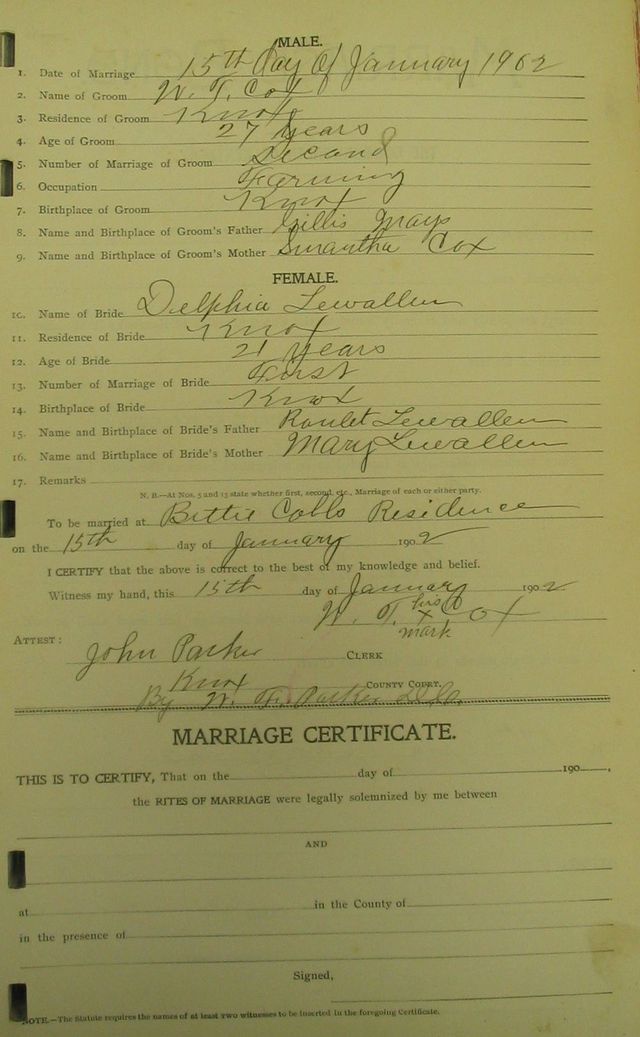 MALE.
1. Date of Marriage 15th day of January 1902
2. Name of Groom W. T. Cox
3. Residence of Groom Knox
4. Age of Groom 27 years
5. Number of Marriage of Groom Second
6. Occupation Farming
7. Birthplace of Groom Knox
8. Name and Birthplace of Groom's Father Gillis Mays
9. Name and Birthplace of Groom's Mother Smantha Cox
FEMALE.
10. Name of Bride Delphia Lewallen
11. Residence of Bride Knox
12. Age of Bride 21 years
13. Number of Marriage of Bride First
14. Birthplace of Bride Knox
15. Name and Birthplace of Bride's Father Lewallen
16. Name and Birthplace of Bride's Mother Mary Lewallen
17. Remarks
N. B.—At Nos. 5 and 13 state whether first, second, etc., Marriage of each or either party.
To be married at Bettie Cobbs Residence
on the 15th day of January 1902
I CERTIFY that the above is correct to the best of my knowledge and belief.
Witness my hand, this 15th day of January 1902
W. T. his x Cox
mark
ATTEST:
John Parker CLERK
Knox COUNTY COURT.
By W. F. Parker D.C.
MARRIAGE CERTIFICATE.
THIS IS TO CERTIFY, That on the day of 190 ,
the RITES OF MARRIAGE were legally solemnized by me between
AND
at in the County of
in the presence of
Signed,
NOTE.—The Statute requires the names of at least two witnesses to be inserted in the foregoing Certificate.